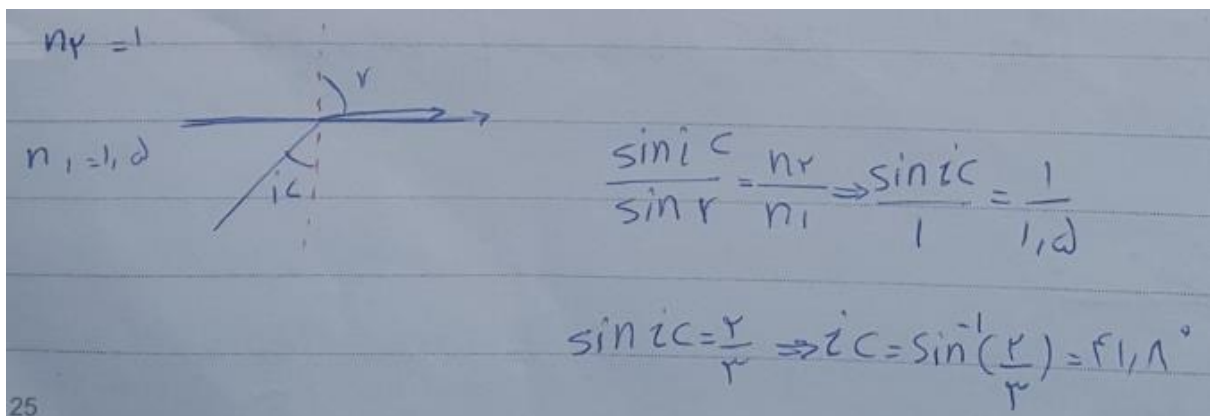 n۲ = ۱
r
n۱ = ۱,۵
ic
sin ic / sin r = n۲ / n۱ ⇒ sin ic / ۱ = ۱ / ۱,۵
sin ic = ۲/۳ ⇒ ic = sin⁻¹(۲/۳) = ۴۱,۸°
25